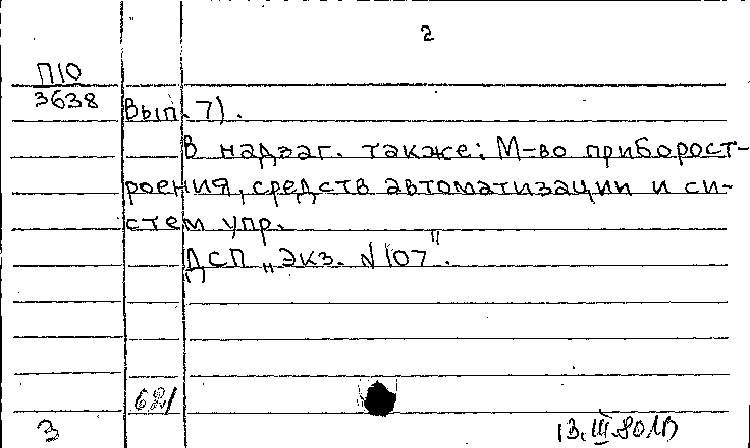 2
П10
3638
Вып. 7).
В надзаг. также: М-во приборост-
роения, средств автоматизации и си-
стем упр.
ДСП „Экз. №107".
621
3
13.III.80